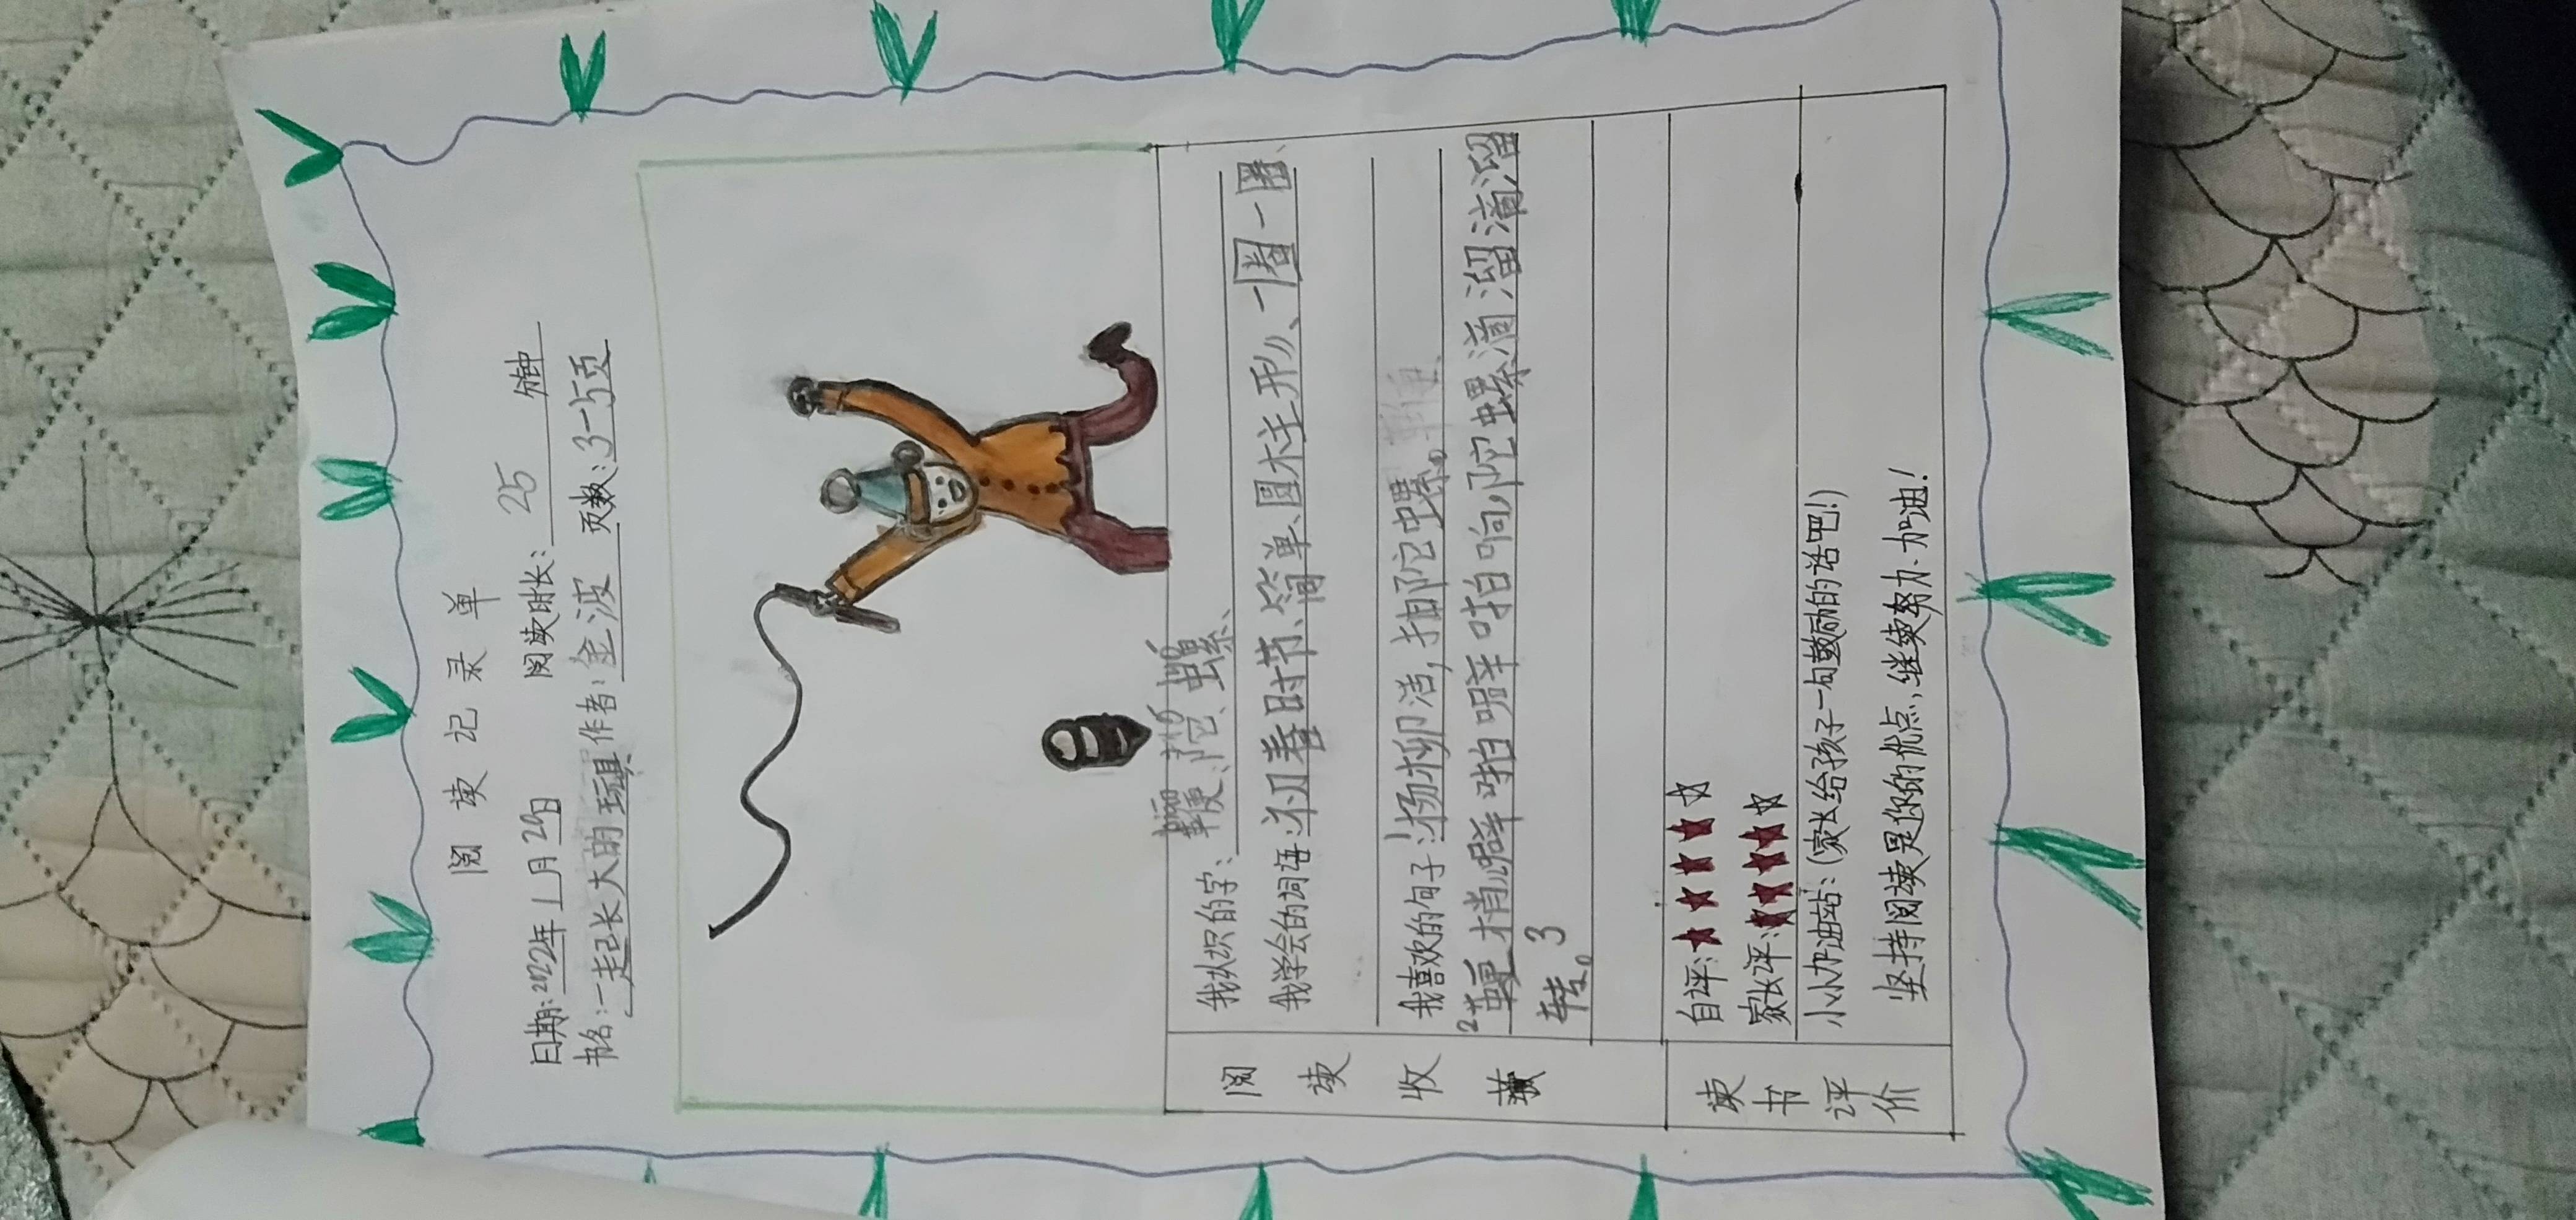 阅读记录单
日期:2022年1月29日 阅读时长:25分钟
书名:一起长大的玩具 作者:金波 页数:3-5页
阅读收获
我认识的字:鞭、陀、螺、
我学会的词语:初春时节、简单、圆柱形、一圈一圈、
我喜欢的句子:1杨柳活,抽陀螺。
2鞭梢噼啪噼啪响,陀螺滴溜滴溜
转。3
读书评价
自评:★★★★☆
家长评:★★★★☆
小小加油站:(家长给孩子一句鼓励的话吧!)
坚持阅读是你的优点,继续努力、加油!